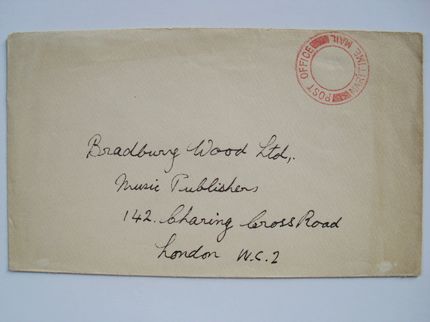 POST OFFICE MARITIME MAIL
Bradbury Wood Ltd,.
Music Publishers
142. Charing Cross Road
London W.C.2